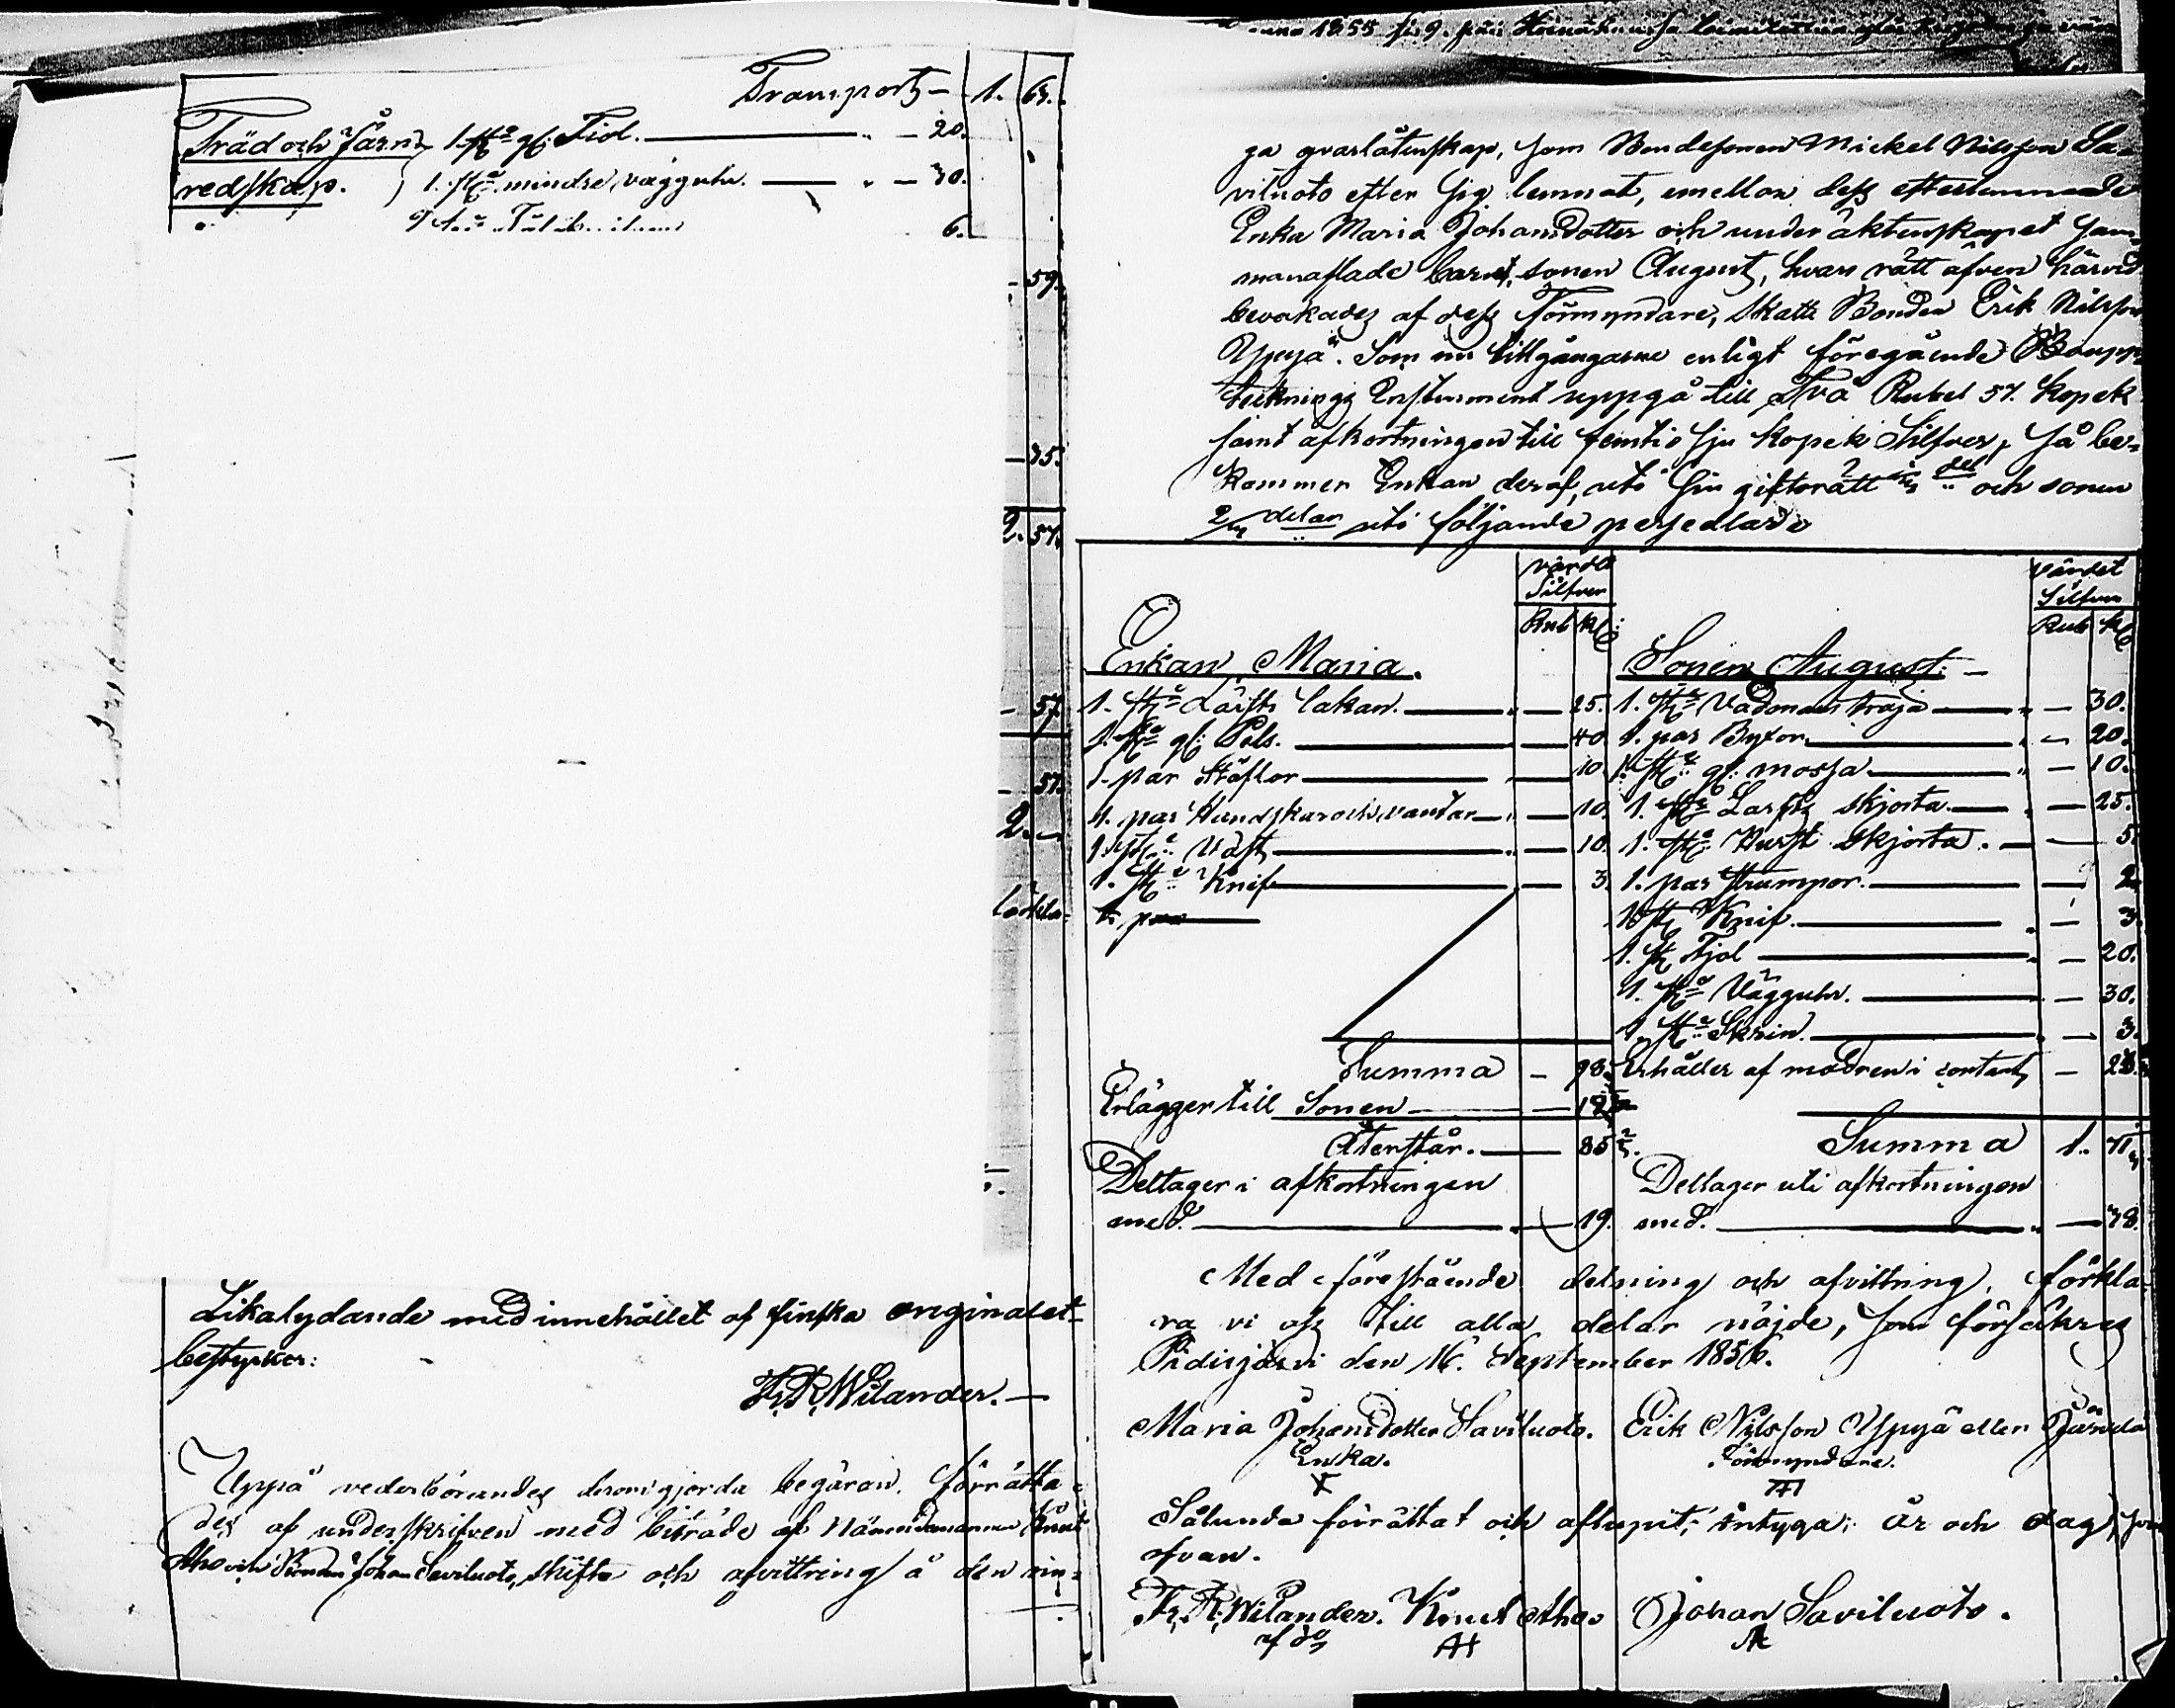 Transport 1. 63.
Träd och Järn 1. st gl: Fiol. 20.
redskap. 1. st mindre vägguhr. 30.
6.
59.
35.
2. 57.
57.
57.
2.
Likalydande med innehållet af finska originalet
bestyrker:
Fr. R. Wilander.
Uppå vederbörandes derom gjorda begäran, förrätta-
des af underskrifven med biträde af Nämndemannen Knut
Aho och Bonden Johan Saviluoto, skifte och afvittring å den rin-
1855
ga qvarlåtenskap, som Bondesonen Mickel Nilsson Sa-
viluoto efter sig lemnat, emellan dess efterlemnade
Enka Maria Johansdotter och under äktenskapet sam-
manaflade barnet, sonen August, hvars rätt äfven härvid
bevakades af dess Förmyndare, Skatte Bonden Erik Nilsson
Yppyä. Som nu tillgångarne enligt föregående Boupp-
tecknings Instrument uppgå till Två Rubel 57. kopek
samt afkortningen till femtio sju kopek Silfver, så be-
kommer Enkan deraf, uti sin giftorätt 1/3 del och sonen
2/3 delar uti följande persedlar
värde Silfver värdet Silfver
Rub K: Rub K:
Enkan Maria. Sonen August:
1. st Lärfts lakan. 25. 1. st Vadmals tröja 30.
1. st gl: Pels. 40 1. par Byxor 20.
1. par Stöflor 10 1. st gl: mössa 10.
1. par Hundskin och vantar 10. 1. st Larfts skjorta 25.
1. st Väst 10. 1. st Hurst skjorta. 5.
1. st Knif 3. 1. par strumpor. 2
1. par 1 st Knif. 3.
1. st Fjol 20.
1. st Vägguhr. 30.
1. st Skrin. 3.
Summa 98. Erhåller af modren i contant
Erlägger till Sonen
Återstår. 85 2/3. Summa 1. 71
Deltager i afkortningen Deltager uti afkortningen
med. 19. med. 38.
Med förestående delning och afvittring, förkla-
ra vi oss till alla delar nöjde, som försäkras
Pidisjärvi den 16. September 1856.
Maria Johansdotter Saviluoto. Erik Nilsson Yppyä eller Järvelä
Enka. Förmyndare.
Sålunda förrättat och aflupit, intyga; år och dag, som
ofvan.
Fr. R. Wilander. Knut Aho Johan Saviluoto.